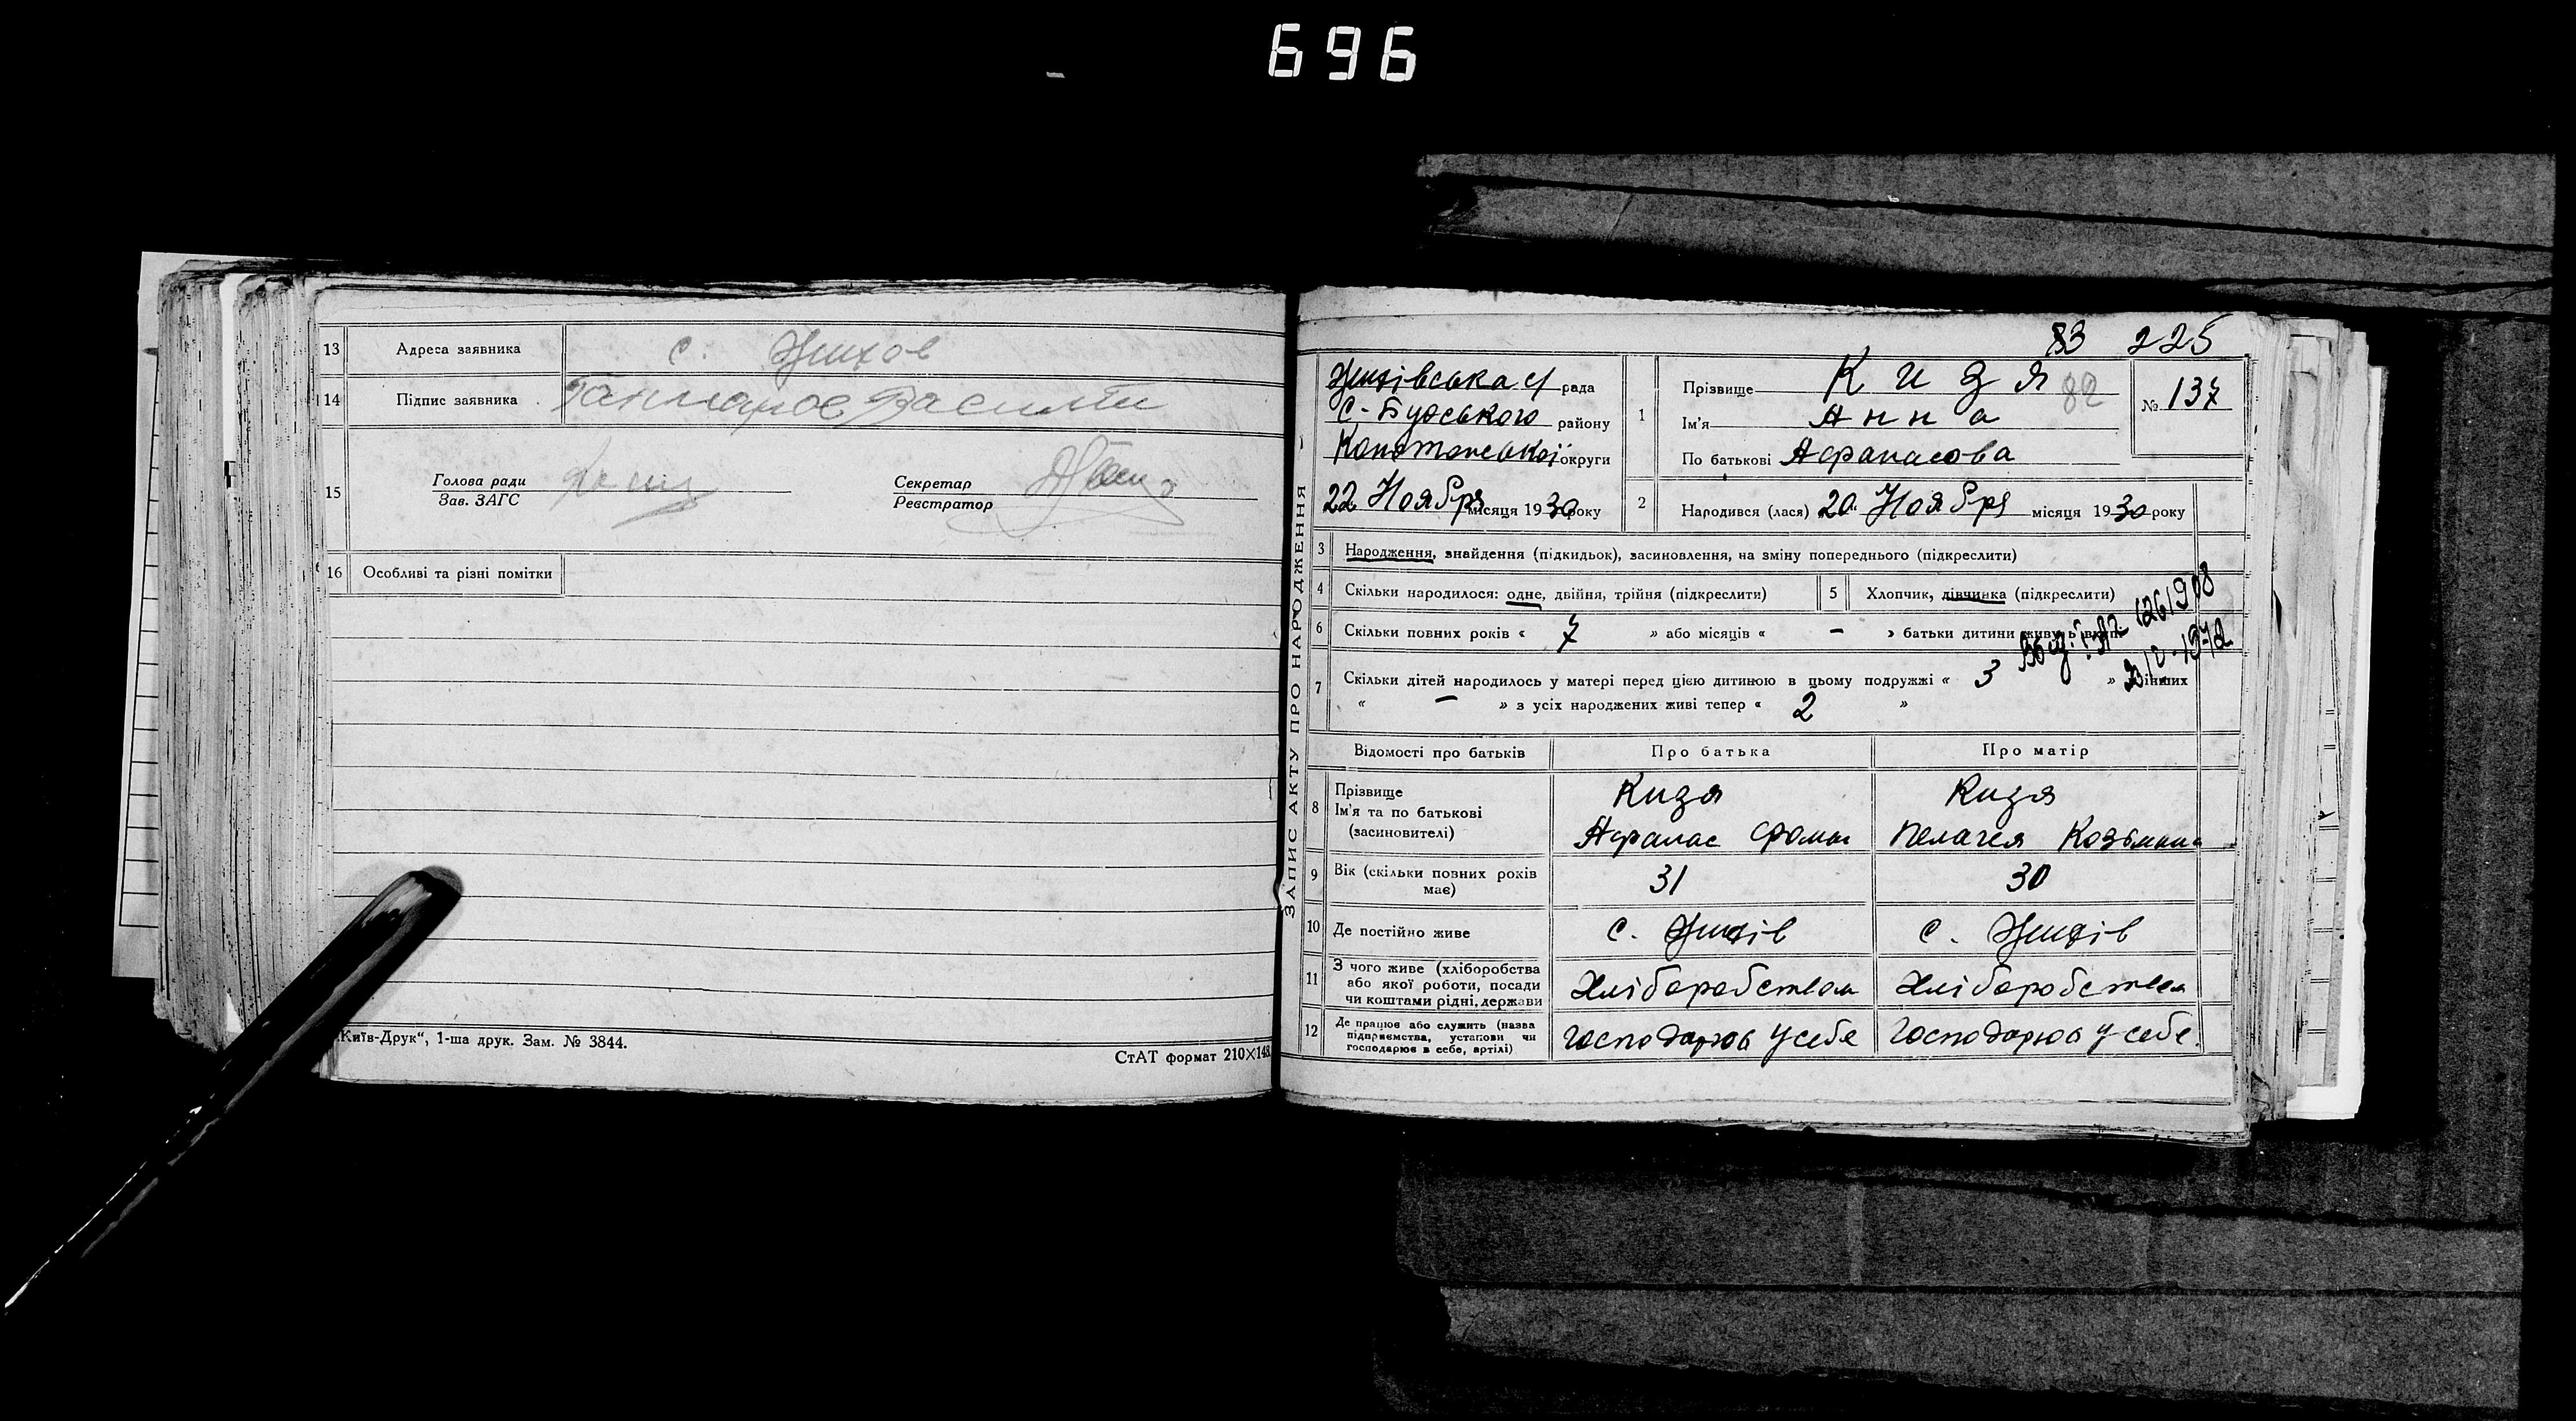 696
13 Адреса заявника с. Жихов
14 Підпис заявника
15 Голова ради
Зав. ЗАГС
Секретар
Реєстратор
16 Особливі та різні помітки
„Київ-Друк“, 1-ша друк. Зам. № 3844.
СтАТ формат 210×148
83 225
ЗАПИС АКТУ ПРО НАРОДЖЕННЯ
Жихівська с/ рада
С-Будського району
Конотопської округи
22 Ноября місяця 1930 року
1 Прізвище Кизя 82
Ім'я Анна
По батькові Афанасова
№ 137
2 Народився (лася) 20 Ноября місяця 1930 року
3 Народження, знайдення (підкидьок), засиновлення, на зміну попереднього (підкреслити)
4 Скільки народилося: одне, двійня, трійня (підкреслити)
5 Хлопчик, дівчинка (підкреслити)
6 Скільки повних років « 7 » або місяців « – » батьки дитини живуть
7 Скільки дітей народилось у матері перед цією дитиною в цьому подружжі « 3 » в інших
« – » з усіх народжених живі тепер « 2 »
Відомості про батьків Про батька Про матір
8 Прізвище Кизя Кизя
Ім'я та по батькові
(засиновителі) Афанас Фомы Пелагея Козьмина
9 Вік (скільки повних років має) 31 30
10 Де постійно живе с. Жихів с. Жихів
11 З чого живе (хліборобства
або якої роботи, посади
чи коштами рідні, держави Хліборобством Хліборобством
12 Де працює або служить (назва
підприємства, установи чи
господарює в себе, артілі) господарює у себе господарює у себе.